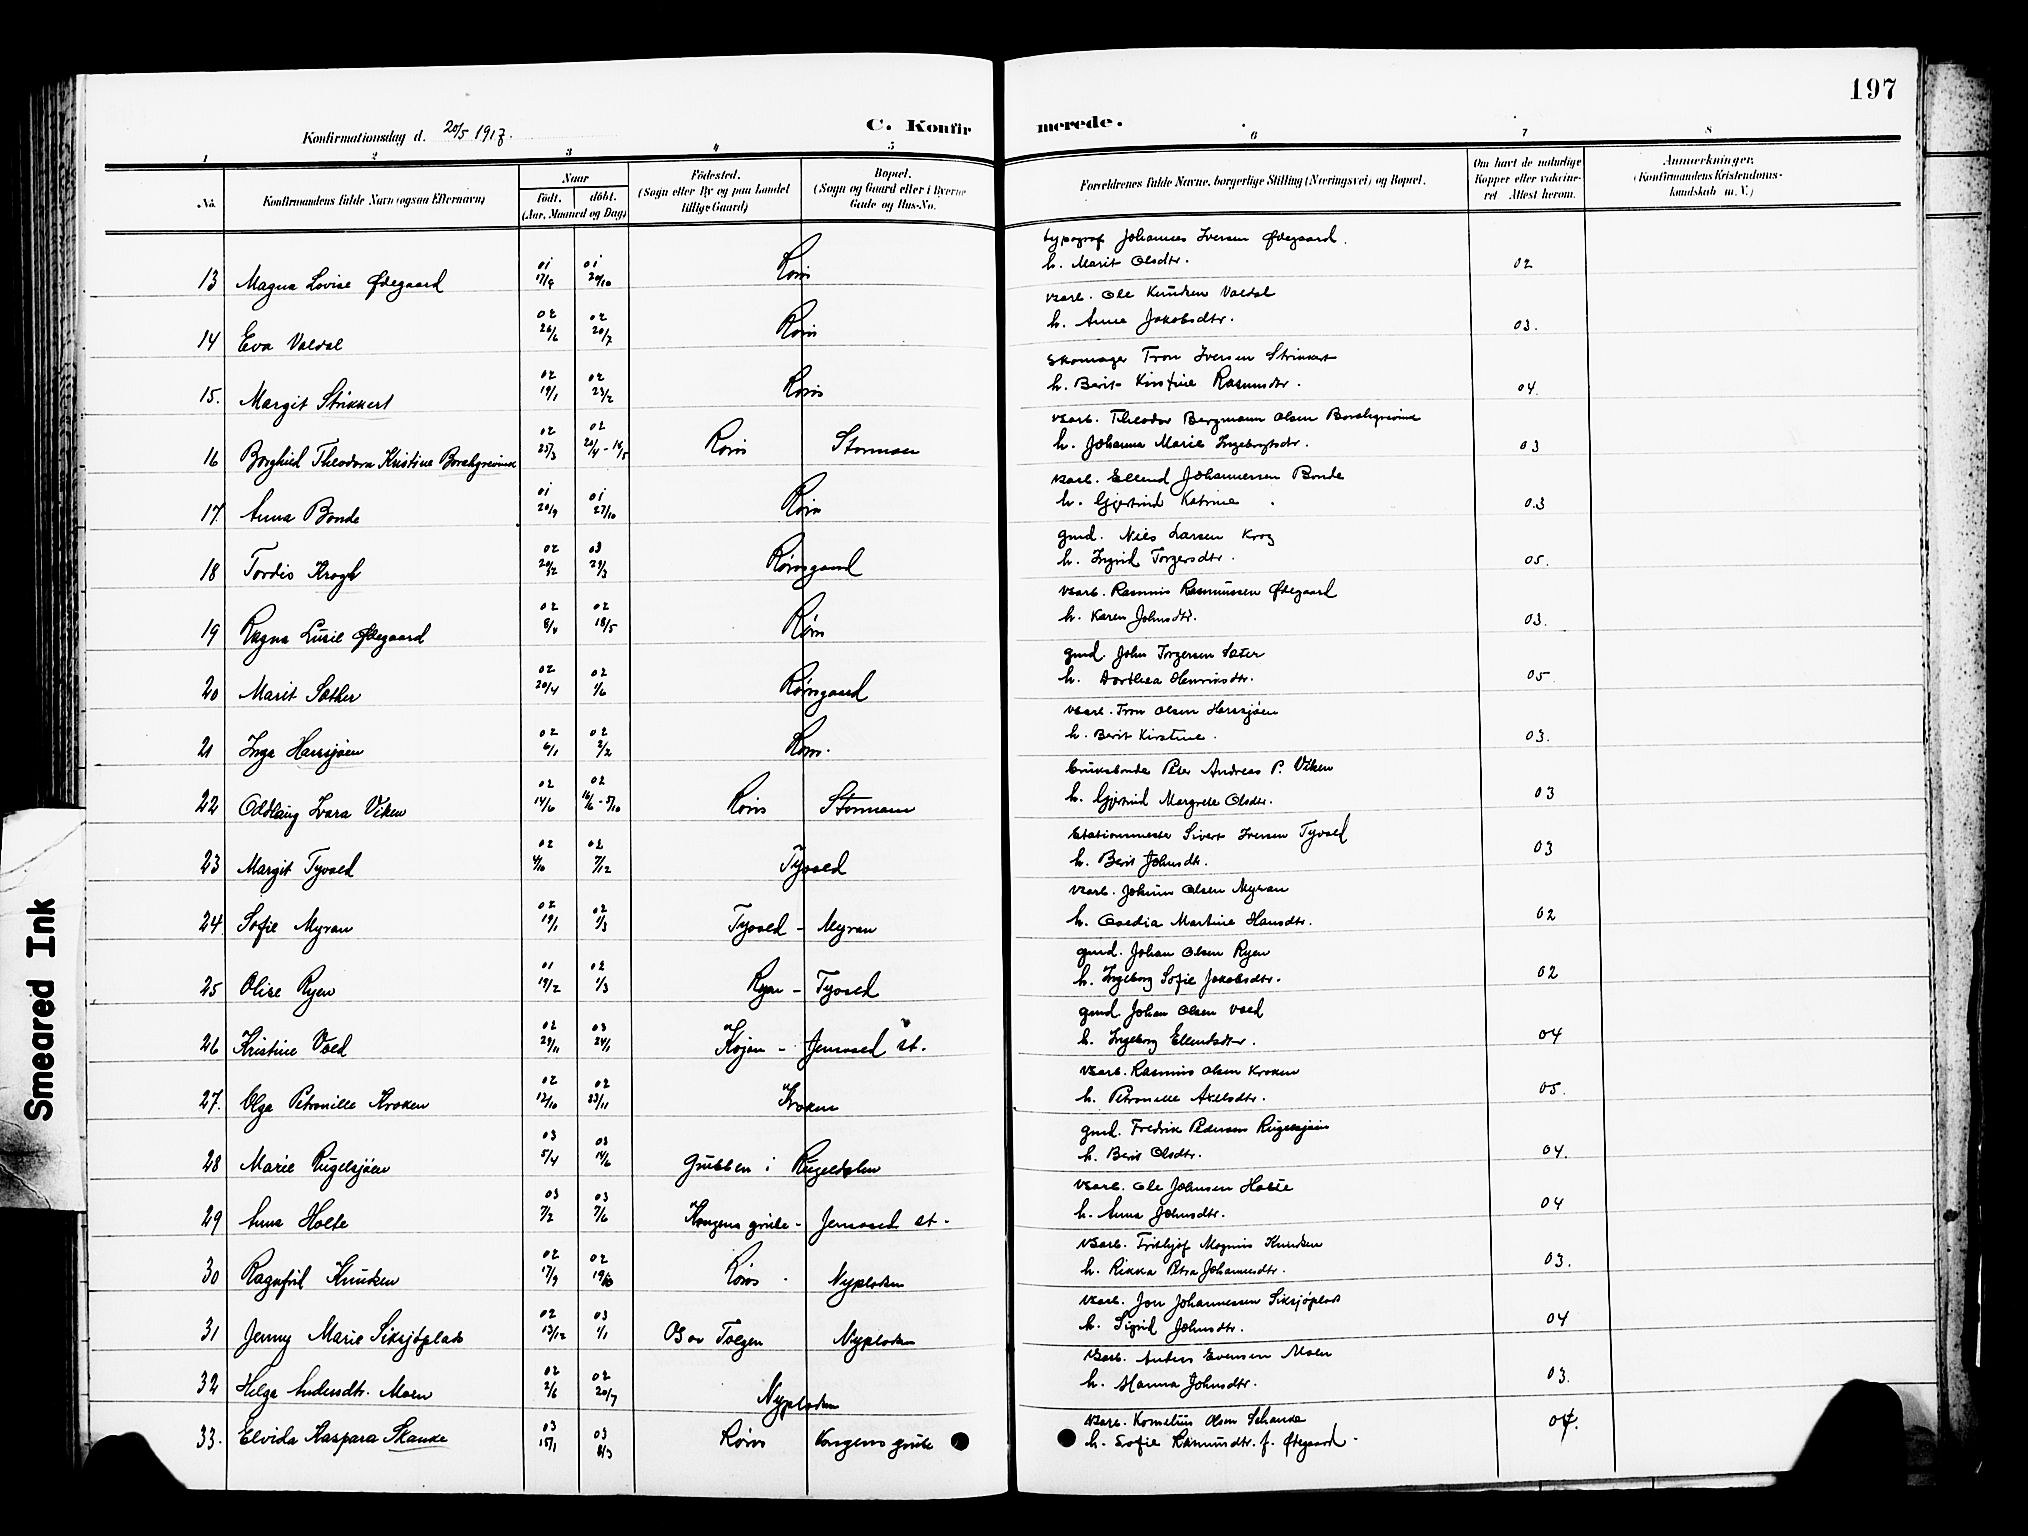 197
Konfirmationsdag d. 20/5 1917.
C. Konfirmerede.
1 2 3 4 5 6 7 8
No. Konfirmandens fulde Navn (ogsaa Efternavn) Naar født. døbt. (Aar, Maaned og Dag) Fødested. (Sogn eller By og paa Landet tillige Gaard) Bopæl. (Sogn og Gaard eller i Byerne Gade og Hus-No. Forældrenes fulde Navne, borgerlige Stilling (Næringsvei) og Bopæl. Om havt de naturlige Kopper eller vaccineret. Attest herom. Anmærkninger. (Konfirmandens Kristendomskundskab m. V.)
typograf Johannes Iversen Ødegaard.
13 Magna Lovise Ødegaard 01 17/9 01 20/10 Røros h. Marit Olsdtr. 02
Varb. Ole Knudsen Valdal
14 Eva Valdal 02 26/6 02 20/7 Røros h. Anna Jakobsdtr. 03.
Skomager Tron Iversen Strikkert
15. Margit Strikkert 02 19/1 02 23/2 Røros h. Berit Kirstine Rasmusdtr. 04.
Varb. Theodor Bergmann Olsen Borchgrevink
16 Borghild Theodora Kristine Borchgrevink 02 25/3 02 20/4 - 18/5 Røros Stormoen h. Johanna Marie Ingebrigtsdtr. 03
Varb. Ellend Johannessen Bonde
17. Anna Bonde 01 20/9 01 27/10 Røros h. Gjertrud Katrine 03
gmd. Nils Larsen Krog
18 Tordis Krogh 02 20/12 03 29/3 Rørosgaard h. Ingrid Torgersdtr. 05.
Varb. Rasmus Rasmussen Ødegaard
19 Ragna Lusie Ødegaard 02 8/4 02 18/5 Røros h. Karen Johnsdtr. 03.
gmd. John Torgersen Sæter
20 Marit Sæther 02 20/4 02 1/6 Rørosgaard h. Dorthea Henriksdtr. 05.
Varb. Tron Olsen Harsjøen
21 Inga Harsjøen 02 6/1 02 2/2 Røros. h. Berit Kirstine. 03.
bruksbonde Peter Andreas P. Viken
22 Oddlaug Ivara Viken 02 14/6 02 16/6 - 5/10 Røros Stormoen h. Gjertrud Margrete Olsdtr. 03
Stationmester Sivert Iversen Tyvold
23 Margit Tyvold 02 4/10 02 7/12 Tyvold h. Berit Johnsdtr. 03
Varb. Johan Olsen Myran
24. Sofie Myran 02 19/1 02 1/3 Tyvold - Myran h. Martine Hansdtr. 02
gmd. Johan Olsen Ryen
25 Olise Ryen 01 19/2 02 1/3 Ryen - Tyvold h. Ingeborg Sofie Jakobsdtr. 02
gmd. Johan Olsen Vold
26 Kristine Vold 02 29/11 03 24/1 Kojan - Jensvold st. h. Ingeborg Ellendsdtr. 04
Varb. Rasmus Olsen Kroken
27. Olga Petronille Kroken 02 12/10 02 23/11 Kroken h. Petronelle Axelsdtr. 05.
gmd. Fredrik Pedersen Rugelsjøen
28 Marie Rugelsjøen 03 5/4 03 14/6 Grubben i Rugeldalen h. Berit Olsdtr. 04.
Varb. Ole Johnsen Holte
29 Anna Holte 03 7/2 03 7/6 Kongens grube - Jensvold st. h. Anna Johnsdtr. 04
Varb. Frithjof Magnus Knudsen
30 Ragnfrid Knudsen 02 17/9 02 19/10 Røros. Nyplassen h. Rikka Petra Johannesdtr. 03.
Varb. Jon Johannessen Siksjøplads
31 Jenny Marie Siksjøplads 02 13/12 03 1/1 Os Tolgen Nyplassen h. Sigrid Johnsdtr. 04
Varb. Anders Evensen Moen
32 Helga Andersdtr. Moen 02 2/6 02 20/7 Nyplassen h. Hanna Johnsdtr. 03.
Varb. Kornelius Olsen Schanke
33. Elvida Kaspara Skanke 03 15/1 03 8/3 Røros Kongens grube h. Sofie Rasmusdtr. f. Ødegaard. 04.
Smeared Ink